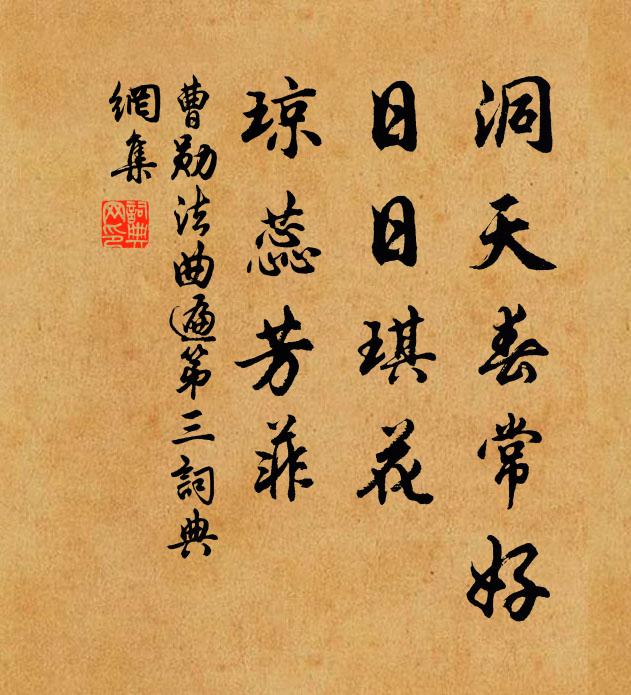 洞天春常好
日日琪花
琼蕊芳菲
曹勋法曲遍第三詞典
網集
詞典網印